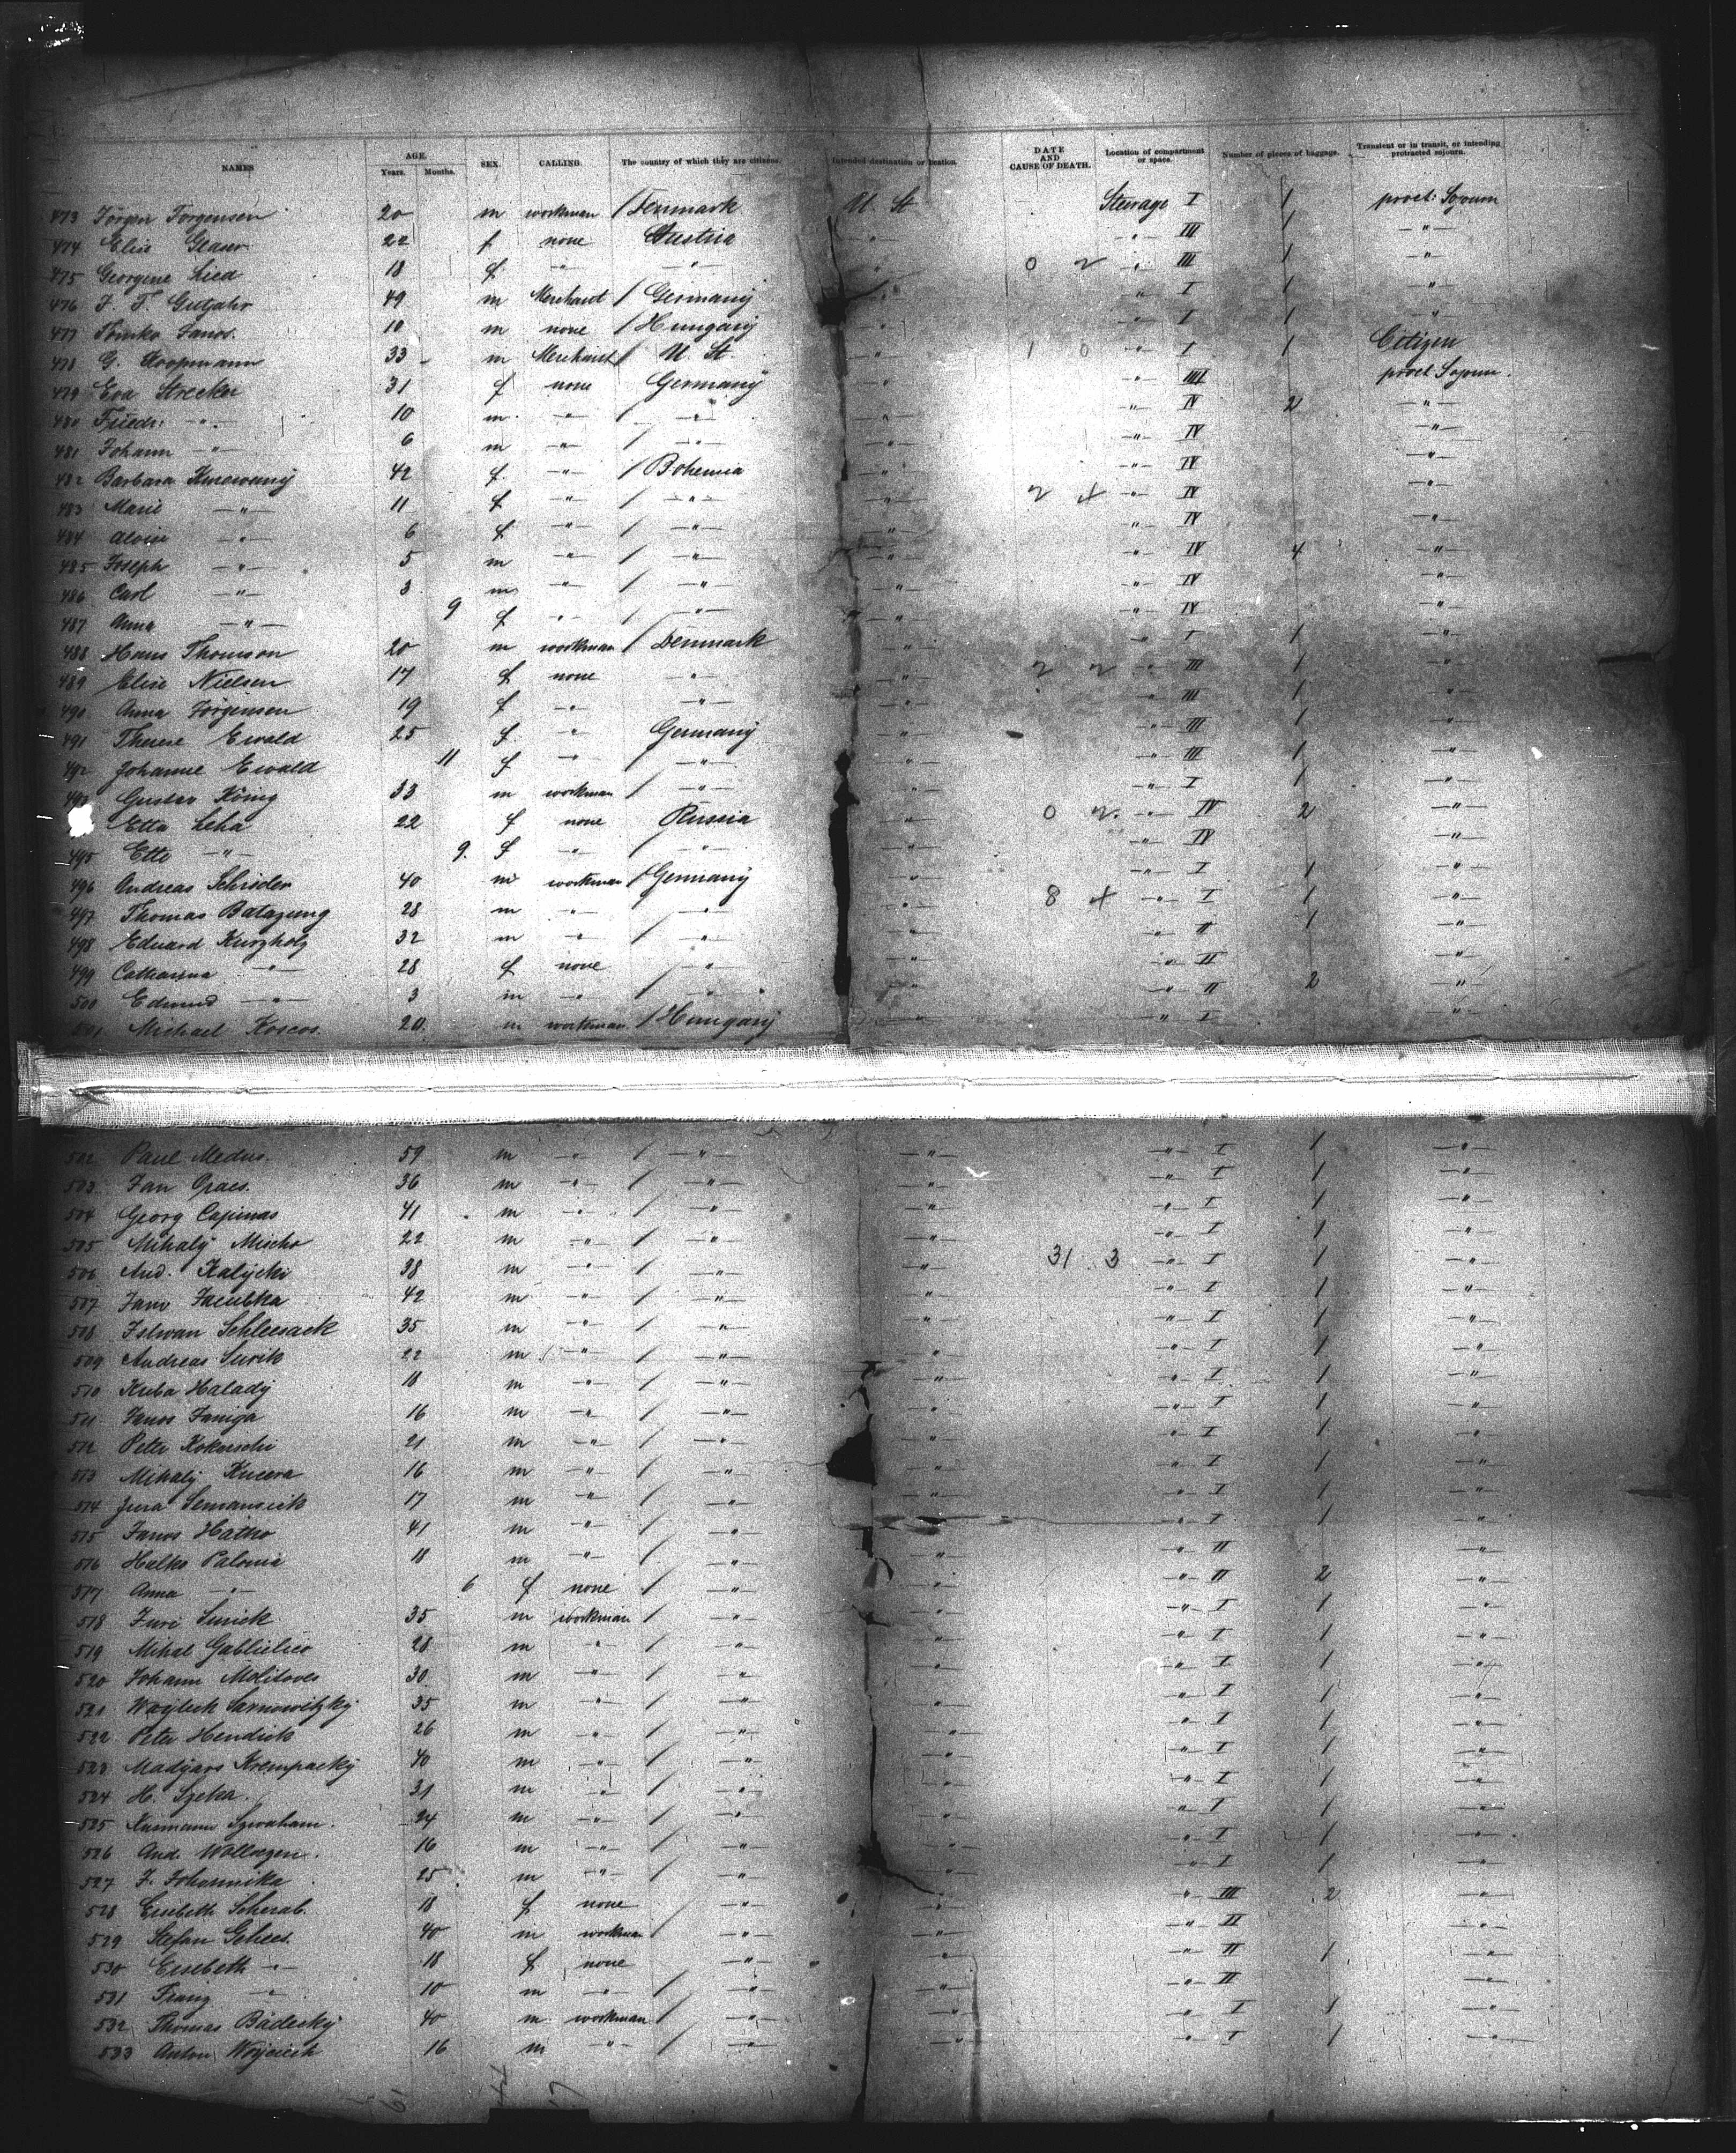 NAMES AGE. Years. Months. SEX. CALLING. The country of which they are citizens. Intended destination or location. DATE AND CAUSE OF DEATH. Location of compartment or space. Number of pieces of baggage. Transient or in transit, or intending protracted sojourn.
473 Jörgen Jorgensen 20 m workman / Denmark U. St Steerage I 1 protr: Sojourn
474 Elise Glaser 22 f none Austria " " III 1 "
475 Georgine Lied 18 f " " " 0 2 " III 1 "
476 J. F. Gutjahr 49 m Merchant / Germany " " I 1 "
477 Tomko Janos. 10 m none / Hungary " " I 1 "
478 G. Koopmann 33 m Merchant / U. St. " 1 0 " I 1 Citizen
479 Eva Strecker 31 f none Germany " " IIII protr Sojourn.
480 Friedr: " 10 m " / " " " IV 2 "
481 Johann " 6 m " / " " " IV "
482 Barbara 42 f. " / Bohemia " " IV "
483 Marie " 11 f " / " " 2 " IV "
484 Aloise " 6 f " / " " " IV "
485 Joseph " 5 m " / " " " IV 4 "
486 Carl " 3 m " / " " " IV "
487 Anna " 9 f " / " " " IV "
488 Hans Thomson 20 m workman / Denmark " " I 1 "
489 Elise Nielsen 17 f none " " 2 2 " III 1 "
490 Anna Jörgensen 19 f " " " " III 1 "
491 Therese Ewald 25 f. " Germany " " III 1 "
492 Johanne Ewald 11 f " / " " " III 1 "
493 Gustav König 33 m workman / " " " I 1 "
Etta Leha 22 f none Russia " 0 2. " IV 2 "
495 Ette " 9. f " / " " " IV "
496 Andreas Schröder 40 m workman / Germany " " I 1 "
497 Thomas Batazung 28 m " / " " 8 " I 1 "
498 Eduard Kurzholz 32 m " / " " " II 1 "
499 Catharina " 28 f none " " " II "
500 Edmund " 3 m " / " " " II 2 "
501 Michael Koscos. 20. m workman / Hungary " " I "
502 Paul Medus. 59 m " / " " " I 1 "
503 Jan Opaes. 36 m " / " " " I 1 "
504 Georg Capinas 41 m " / " " " I 1 "
505 Mihalÿ Mischo 22 m " / " " " I 1 "
506 And. Kalÿcki 38 m " / " " 31 3 " I 1 "
507 Jano Jacubka 42 m " / " " " I 1 "
508 Istwan Schleesack 35 m " / " " " I 1 "
509 Andreas Surik 22 m " / " " " I 1 "
510 Kuba Halady 18 m " / " " " I 1 "
511 Janos Janiga 16 m " / " " " I 1 "
512 Peter Kokuschi 21 m " / " " " I 1 "
513 Mihalÿ Kucera 16 m " / " " " I 1 "
514 Jura Semanscik 17 m " / " " " I 1 "
515 Janos Hatko 41 m " / " " " I 1 "
516 Halko Palonia 18 m " / " " " II "
517 Anna " 6 f none / " " " II 2 "
518 Juri Surick 35 m workman / " " " I 1 "
519 Mihal 28 m " / " " " I 1 "
520 Johann Molitoves 30. m " / " " " I 1 "
521 Wojtech Sarnowitzky 35 m " / " " " I 1 "
522 Peter Hendrik 26 m " / " " " I 1 "
523 Madÿars Krempackÿ 40 m " / " " " I 1 "
524 H. Szeka. 31 m " / " " " I 1 "
525 24 m " / " " " I 1 "
526 And. 16 m " / " " " I 1 "
527 J. Johannika 25 m " / " " " I 1 "
528 Elisbeth Scherab. 18 f none " " " III 2 "
529 Stefan Gehecs. 40 m workman / " " " II "
530 Elisbeth " 18 f none " " " II 1 "
531 Franz " 10 m " / " " " II "
532 Thomas Badecky 40 m workman / " " " I 1 "
533 Anton Wojciech 16 m " / " " " I 1 "